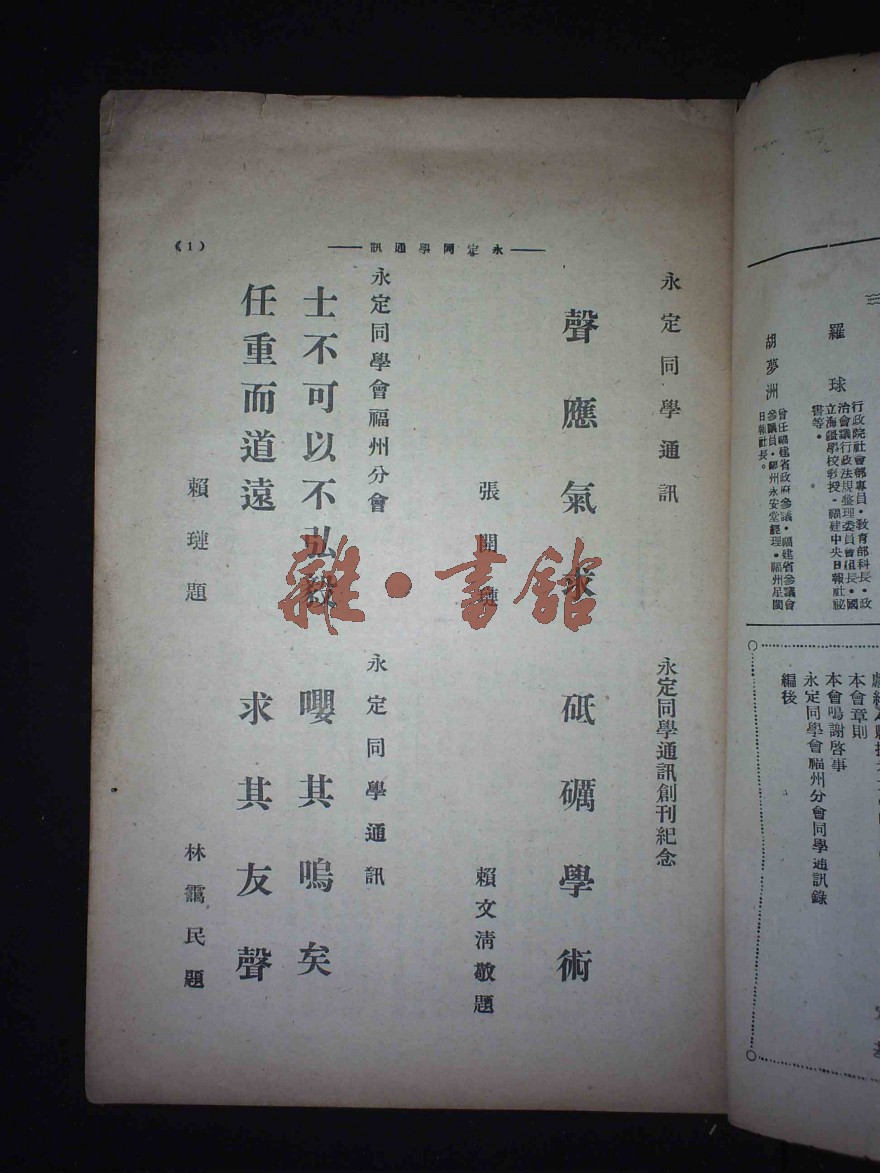 羅球
行政院社會部專員·教育部科長·政
治會議行政法規整理委員會組長·國
立海疆學校教授·福建中央日報社祕
書等·
胡夢洲
曾任福建省政府參議·福建省參議會
參議員·福州永安堂經理·福州星閩
日報社長。
本會章則
本會鳴謝啓事
永定同學會福州分會同學通訊錄
編後
永定同學通訊
(1)
永定同學通訊
聲應氣求
張開璉
永定同學通訊創刊紀念
砥礪學術
賴文清敬題
永定同學會福州分會
士不可以不弘毅
任重而道遠
賴璉題
永定同學通訊
嚶其嗚矣
求其友聲
林靄民題
雜·書館